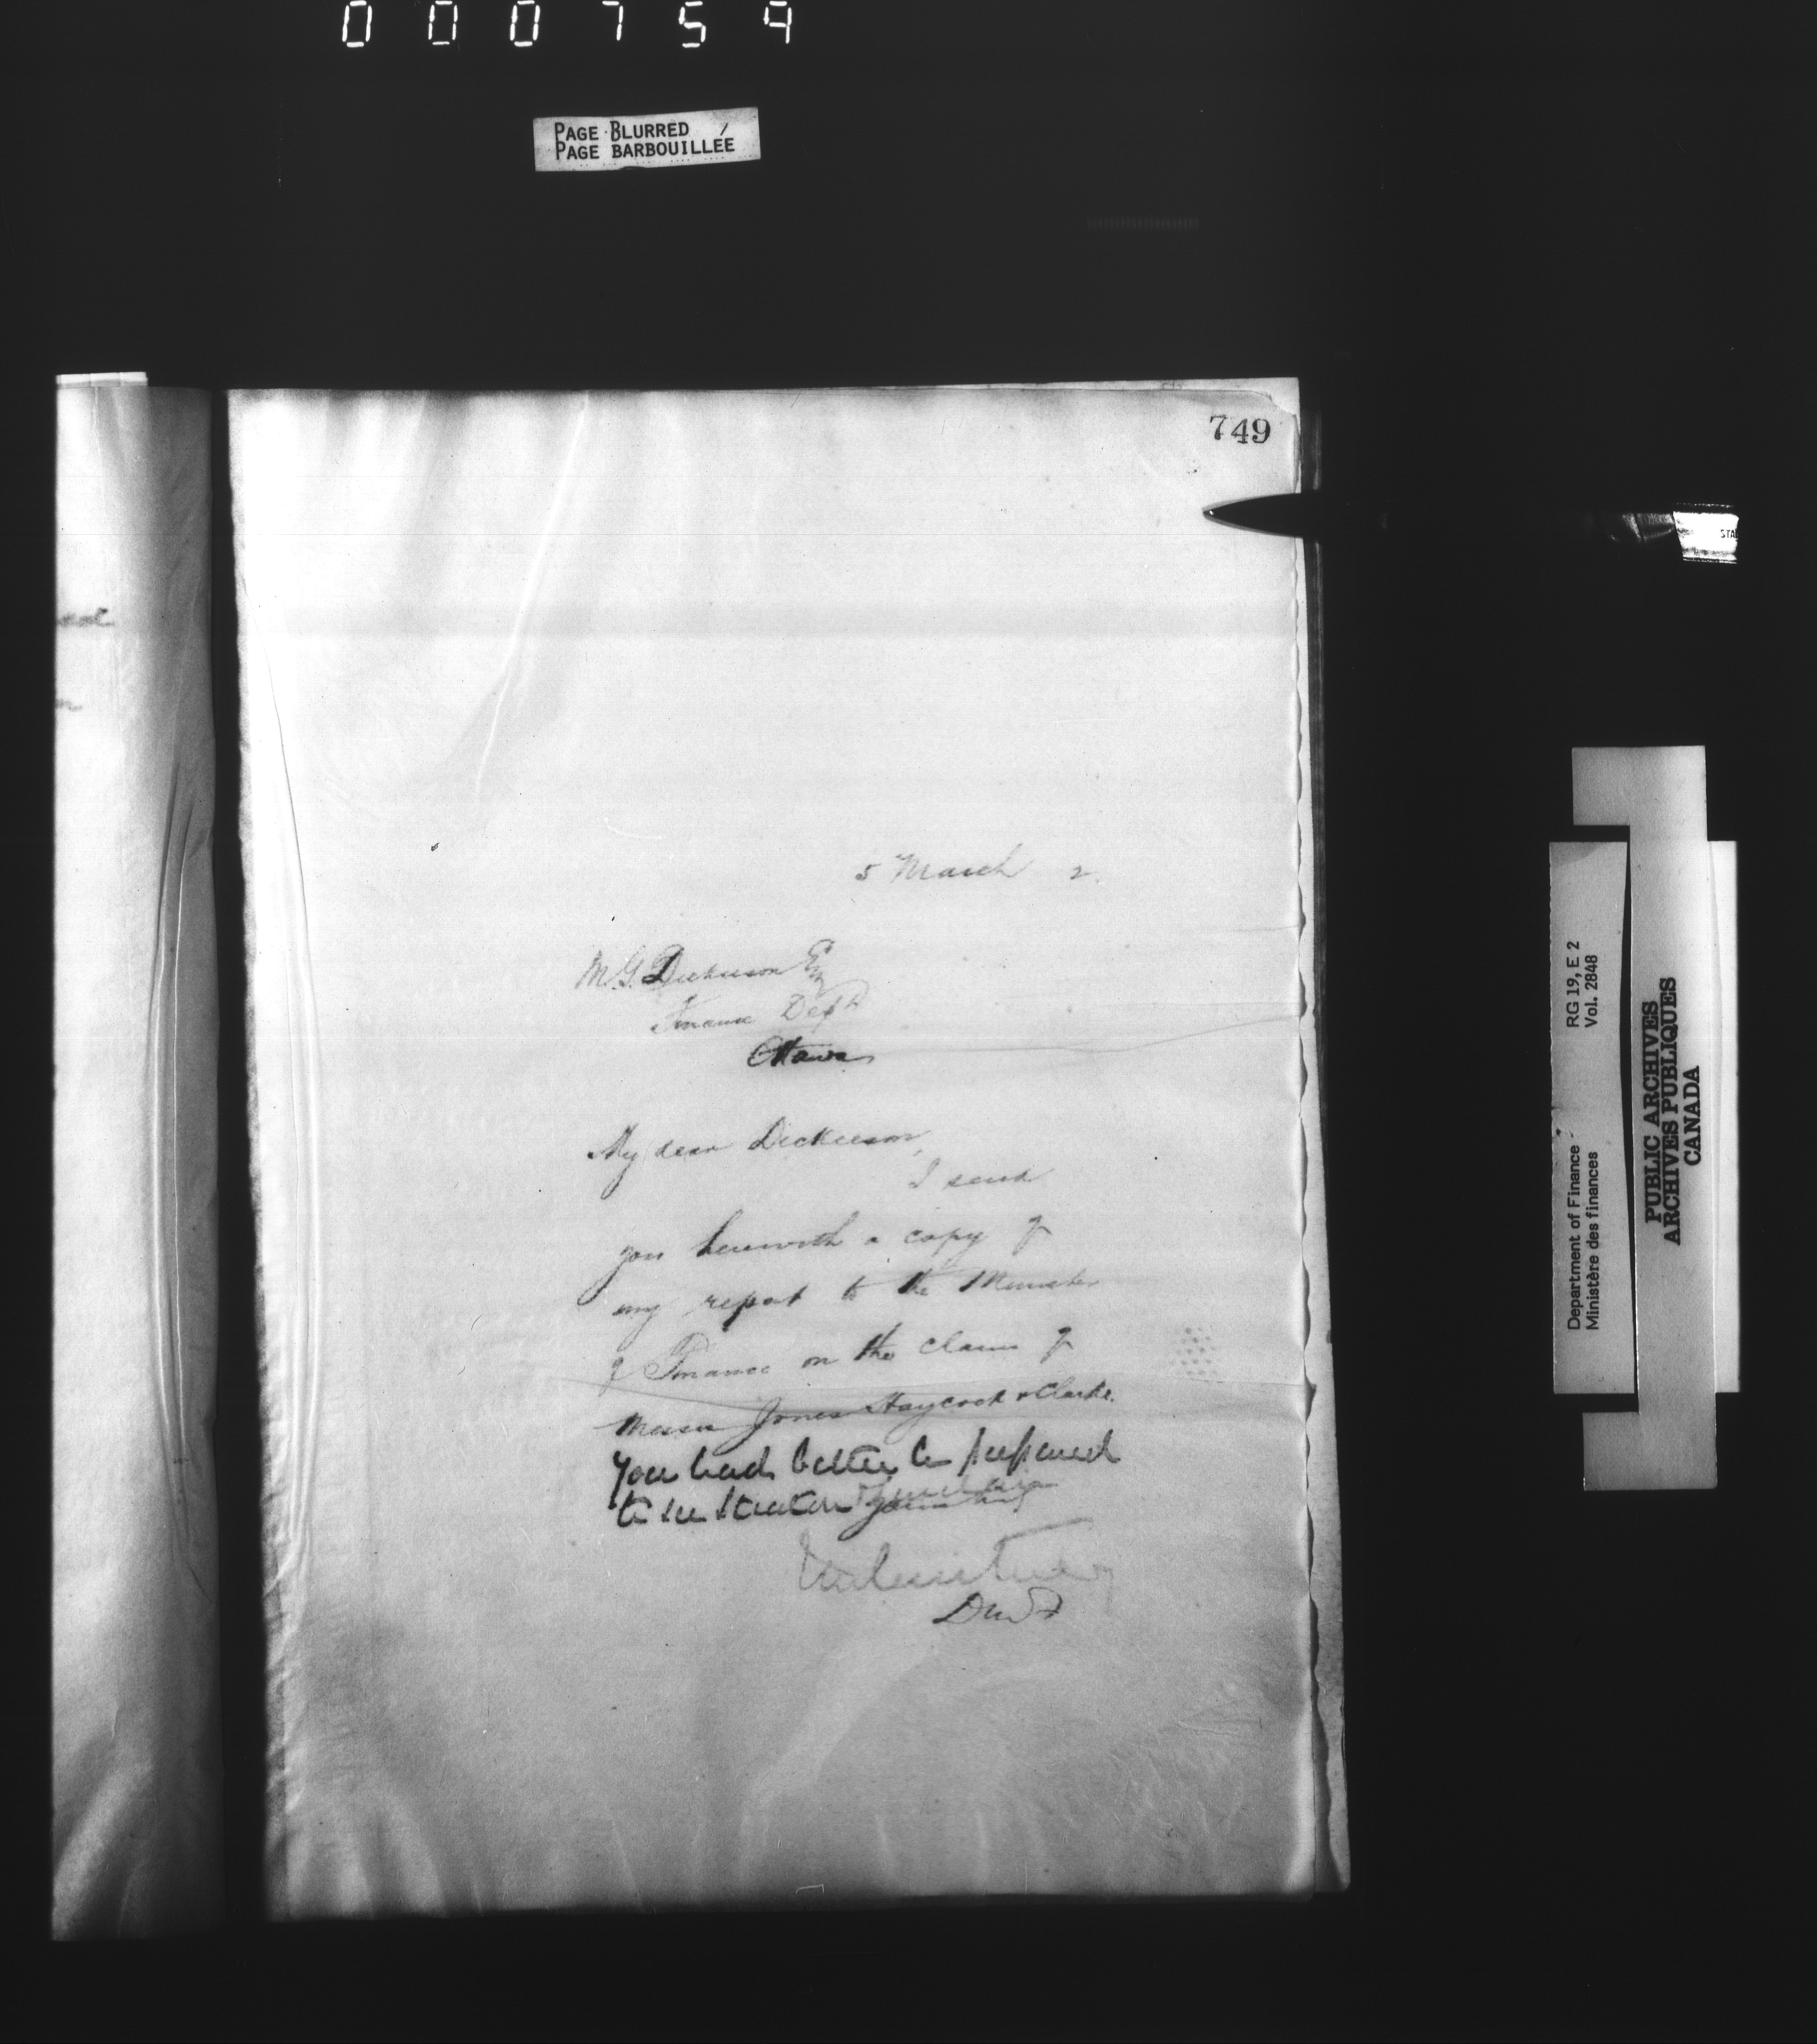 000754
PAGE BLURRED
PAGE BARBOUILLÉE
ed
749
5 March 2.
M.G. Dickieson Esq
Finance Dept
Ottawa
My dear Dickieson,
I send
you herewith a copy of
my report to the Minister
of Finance on the claims of
Messrs Jones Haycock & Clarke.
You had better be prepared
to see
DMF
STA
RG 19, E 2
Vol. 2848
Department of Finance
Ministère des finances
PUBLIC ARCHIVES
ARCHIVES PUBLIQUES
CANADA